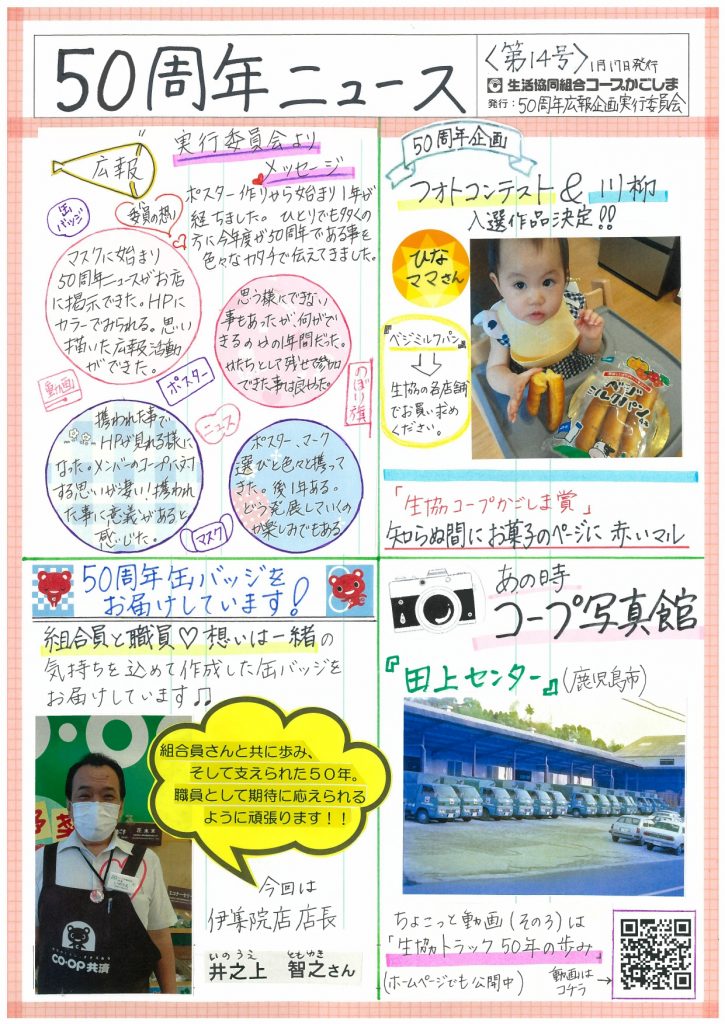 50周年ニュース
〈第14号〉1月17日発行
生活協同組合コープかごしま
発行:50周年広報企画実行委員会
広報
実行委員会より
メッセージ
缶
バッジ
委員の想い
ポスター作りから始まり1年が
経ちました。ひとりでも多くの
方に今年度が50周年である事を
色々なカタチで伝えてきました。
マスクに始まり
50周年ニュースがお店
に掲示できた。HPに
カラーでみられる。思い
描いた広報活動
ができた。
思う様にできない
事もあったが、何がで
きるのかの1年間だった。
かたちとして残せて参加
できた事は良かった。
動画
ポスター
ニュース
のぼり旗
携われた事で
HPが見れる様に
なった。メンバーのコープに対
する思いが凄い!携われ
た事に意義があると
感じた。
ポスター、マーク
選びと色々と携って
きた。後1年ある。
どう発展していくの
か楽しみでもある
マスク
50周年企画
フォトコンテスト&川柳
入選作品決定!!
ひな
ママさん
『ベジミルクパン』
生協の各店舗
でお買い求め
ください。
ベジ
ミルクパン
「生協コープかごしま賞」
知らぬ間にお菓子のページに赤いマル
50周年缶バッジを
お届けしています!
組合員と職員♡想いは一緒の
気持ちを込めて作成した缶バッジを
お届けしています♫
組合員さんと共に歩み、
そして支えられた50年。
職員として期待に応えられる
ように頑張ります!!
CO・OP共済
今回は
伊集院店店長
いのうえ ともゆき
井之上 智之さん
あの時
コープ写真館
『田上センター』(鹿児島市)
ちょこっと動画(その3)は
「生協トラック50年の歩み」
(ホームページでも公開中)
動画は
コチラ